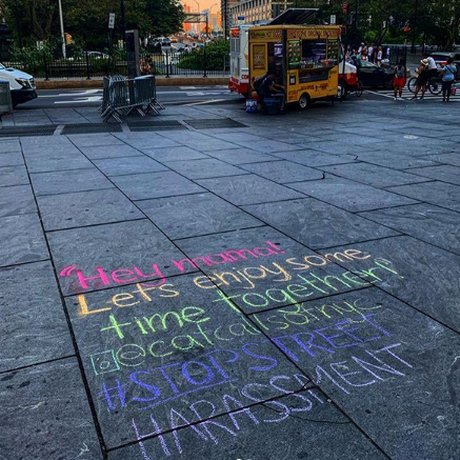 "Hey mama!
Let's enjoy some
time together."
@catcallsofnyc
#STOPSTREET
HARASSMENT